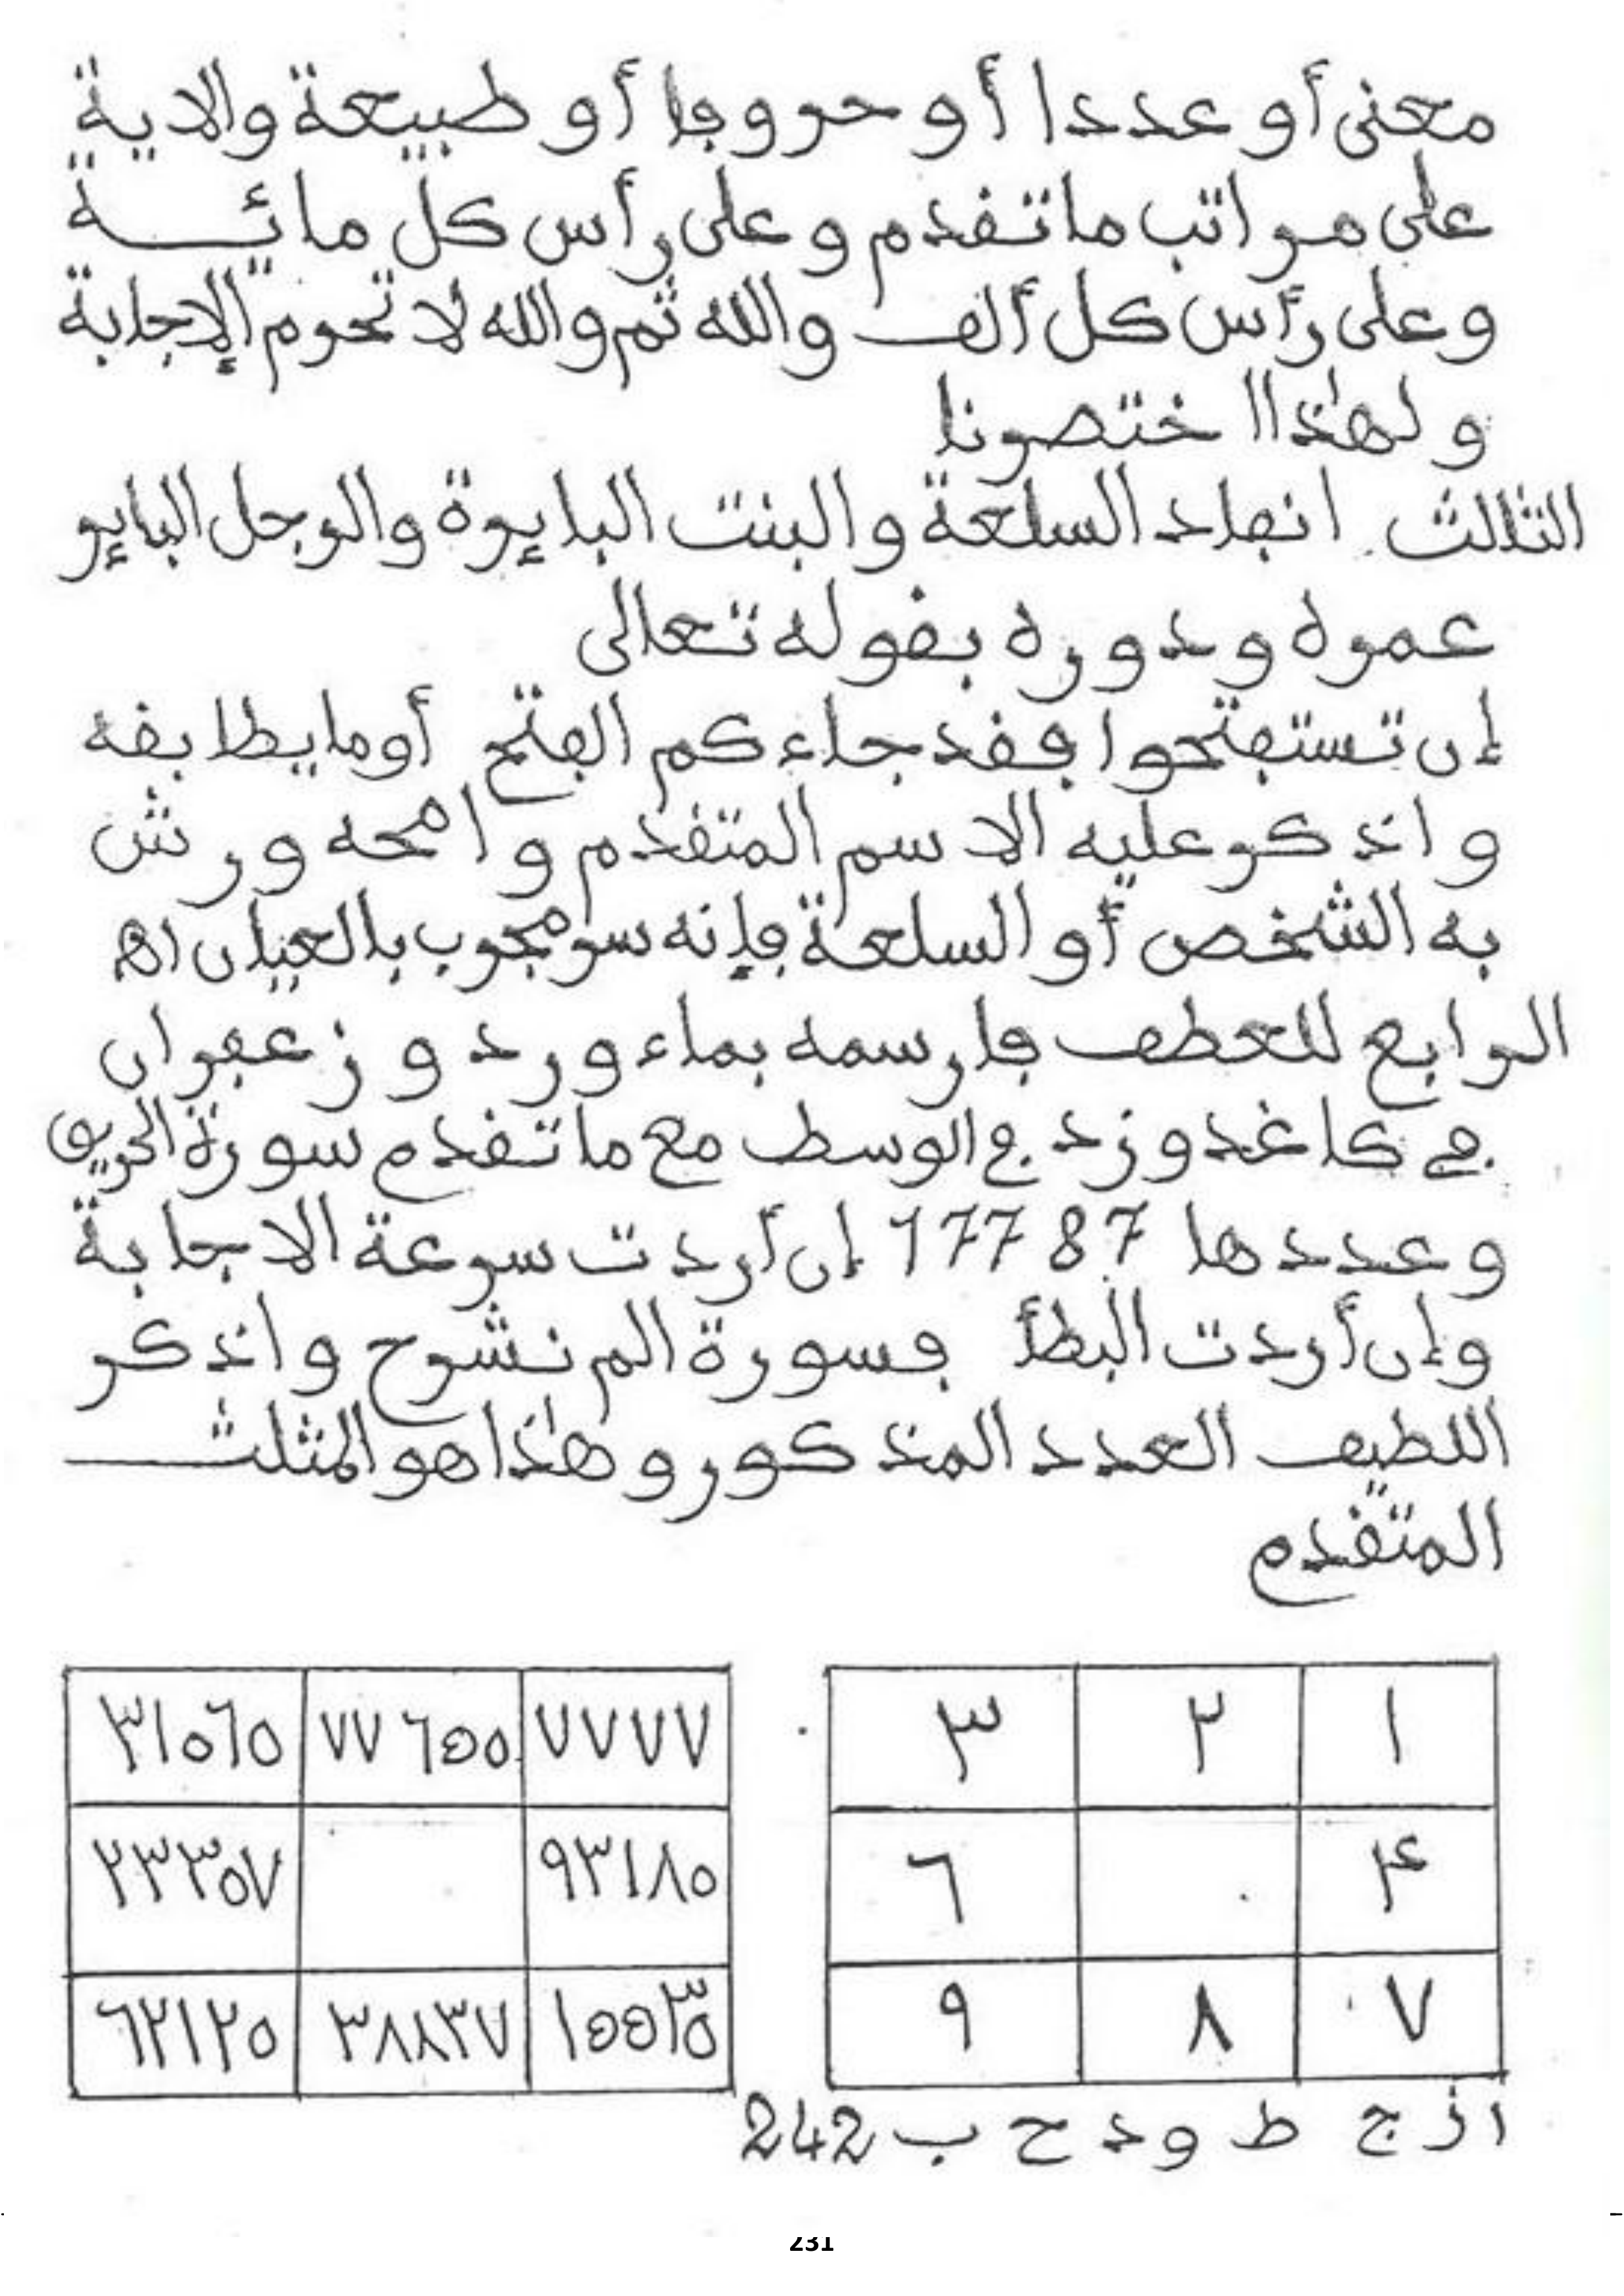 معنى أو عددا أو حروفا أو طبيعة والاية
على مراتب ما تقدم وعلى رأس كل مائـــة
وعلى رأس كل ألف والله ثم والله لا تحرم الإجابة
ولهذا اختصرنا
الثالث انفاد السلعة والبنت البايرة والرجل الباير
عمره ودوره بقوله تعالى
إن تستفتحوا فقد جاءكم الفتح أو ما يطابقه
واذكر عليه الاسم المتقدم وامحه ورش
به الشخص أو السلعة فإنه سر مجرب بالعيان اهـ
الرابع للعطف فارسمه بماء ورد وزعفران
في كاغد وزد في الوسط مع ما تقدم سورة
وعددها 17787 إن أردت سرعة الاجابة
وإن أردت البطأ فسورة الم نشرح واذكر
اللطيف العدد المذكور وهذا هو المثلث
المتقدم
١ ٢ ٣
۴ ٦
٧ ٨ ٩
٧٧٧٧ ٧٧٦٥٥ ٣١٠٦٥
٩٣١٨٠ ٢٣٣٥٧
١٥٥٣٥ ٣٨٨٣٧ ٦٢١٢٥
ا ز ج ط و د ح ب 242
231